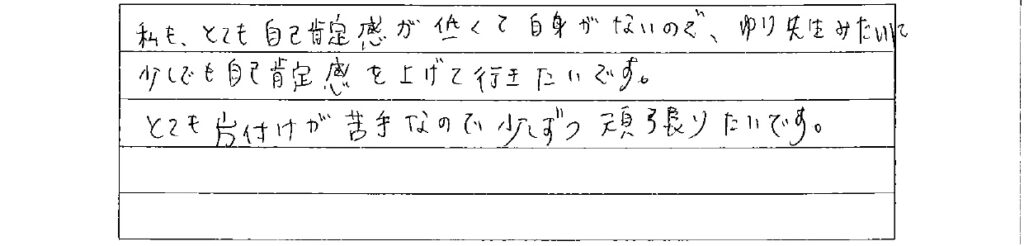 私も、とても自己肯定感が低くて自身がないので、ゆり先生みたいに
少しでも自己肯定感を上げて行きたいです。
とても片付けが苦手なので少しずつ頑張りたいです。